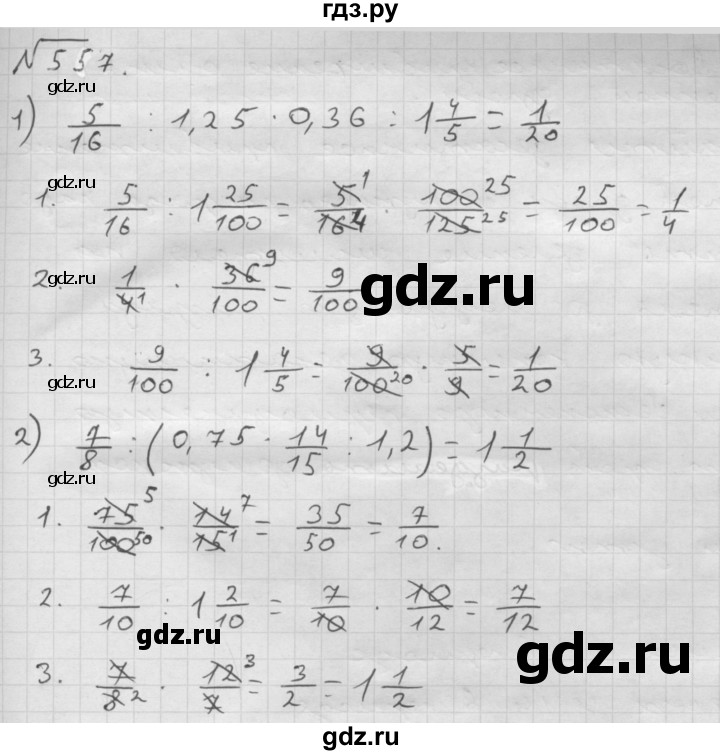 гдз.ру
№557.
gdz.ru
1) 5/16 : 1,25 · 0,36 : 1 4/5 = 1/20
gdz.ru gdz.ru
1. 5/16 : 1 25/100 = 5 1/16 4 · 100 25/125 25 = 25/100 = 1/4
gdz.ru gdz.ru
2. 1/4 1 · 36 9/100 = 9/100
gdz.ru gdz.ru
3. 9/100 : 1 4/5 = 9/100 20 · 5/9 = 1/20
gdz.ru gdz.ru
2) 7/8 : (0,75 · 14/15 : 1,2) = 1 1/2
gdz.ru
1. 75 5/100 50 · 14 7/15 1 = 35/50 = 7/10.
gdz.ru
2. 7/10 : 1 2/10 = 7/10 · 10/12 = 7/12
gdz.ru gdz.ru
3. 7/8 2 · 12 3/7 = 3/2 = 1 1/2
gdz.ru
гдз.ру